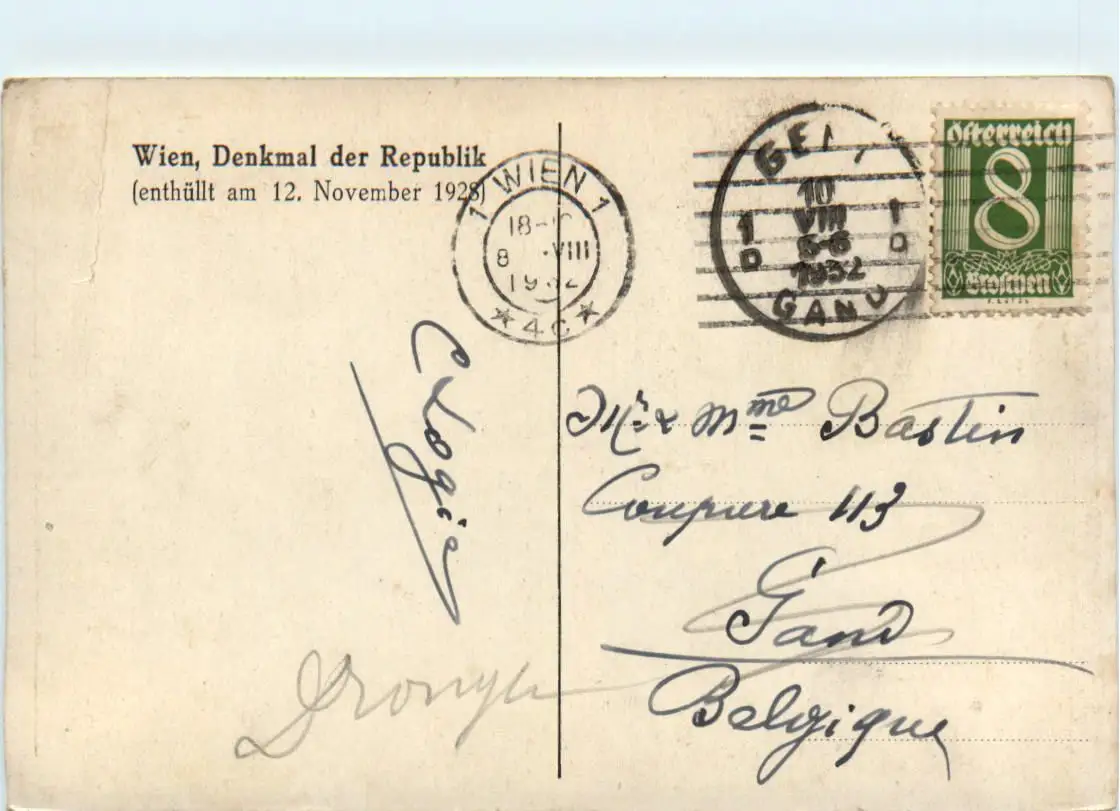 Wien, Denkmal der Republik
(enthüllt am 12. November 1928)
1 WIEN 1
18-
8 VIII
1932
* 4c *
GENT
10
VIII
5-6
1932
1D 1D
GAND
Österreich
8
Groschen
Mr & Mme Bastin
Coupure 113
Gand
Belgique